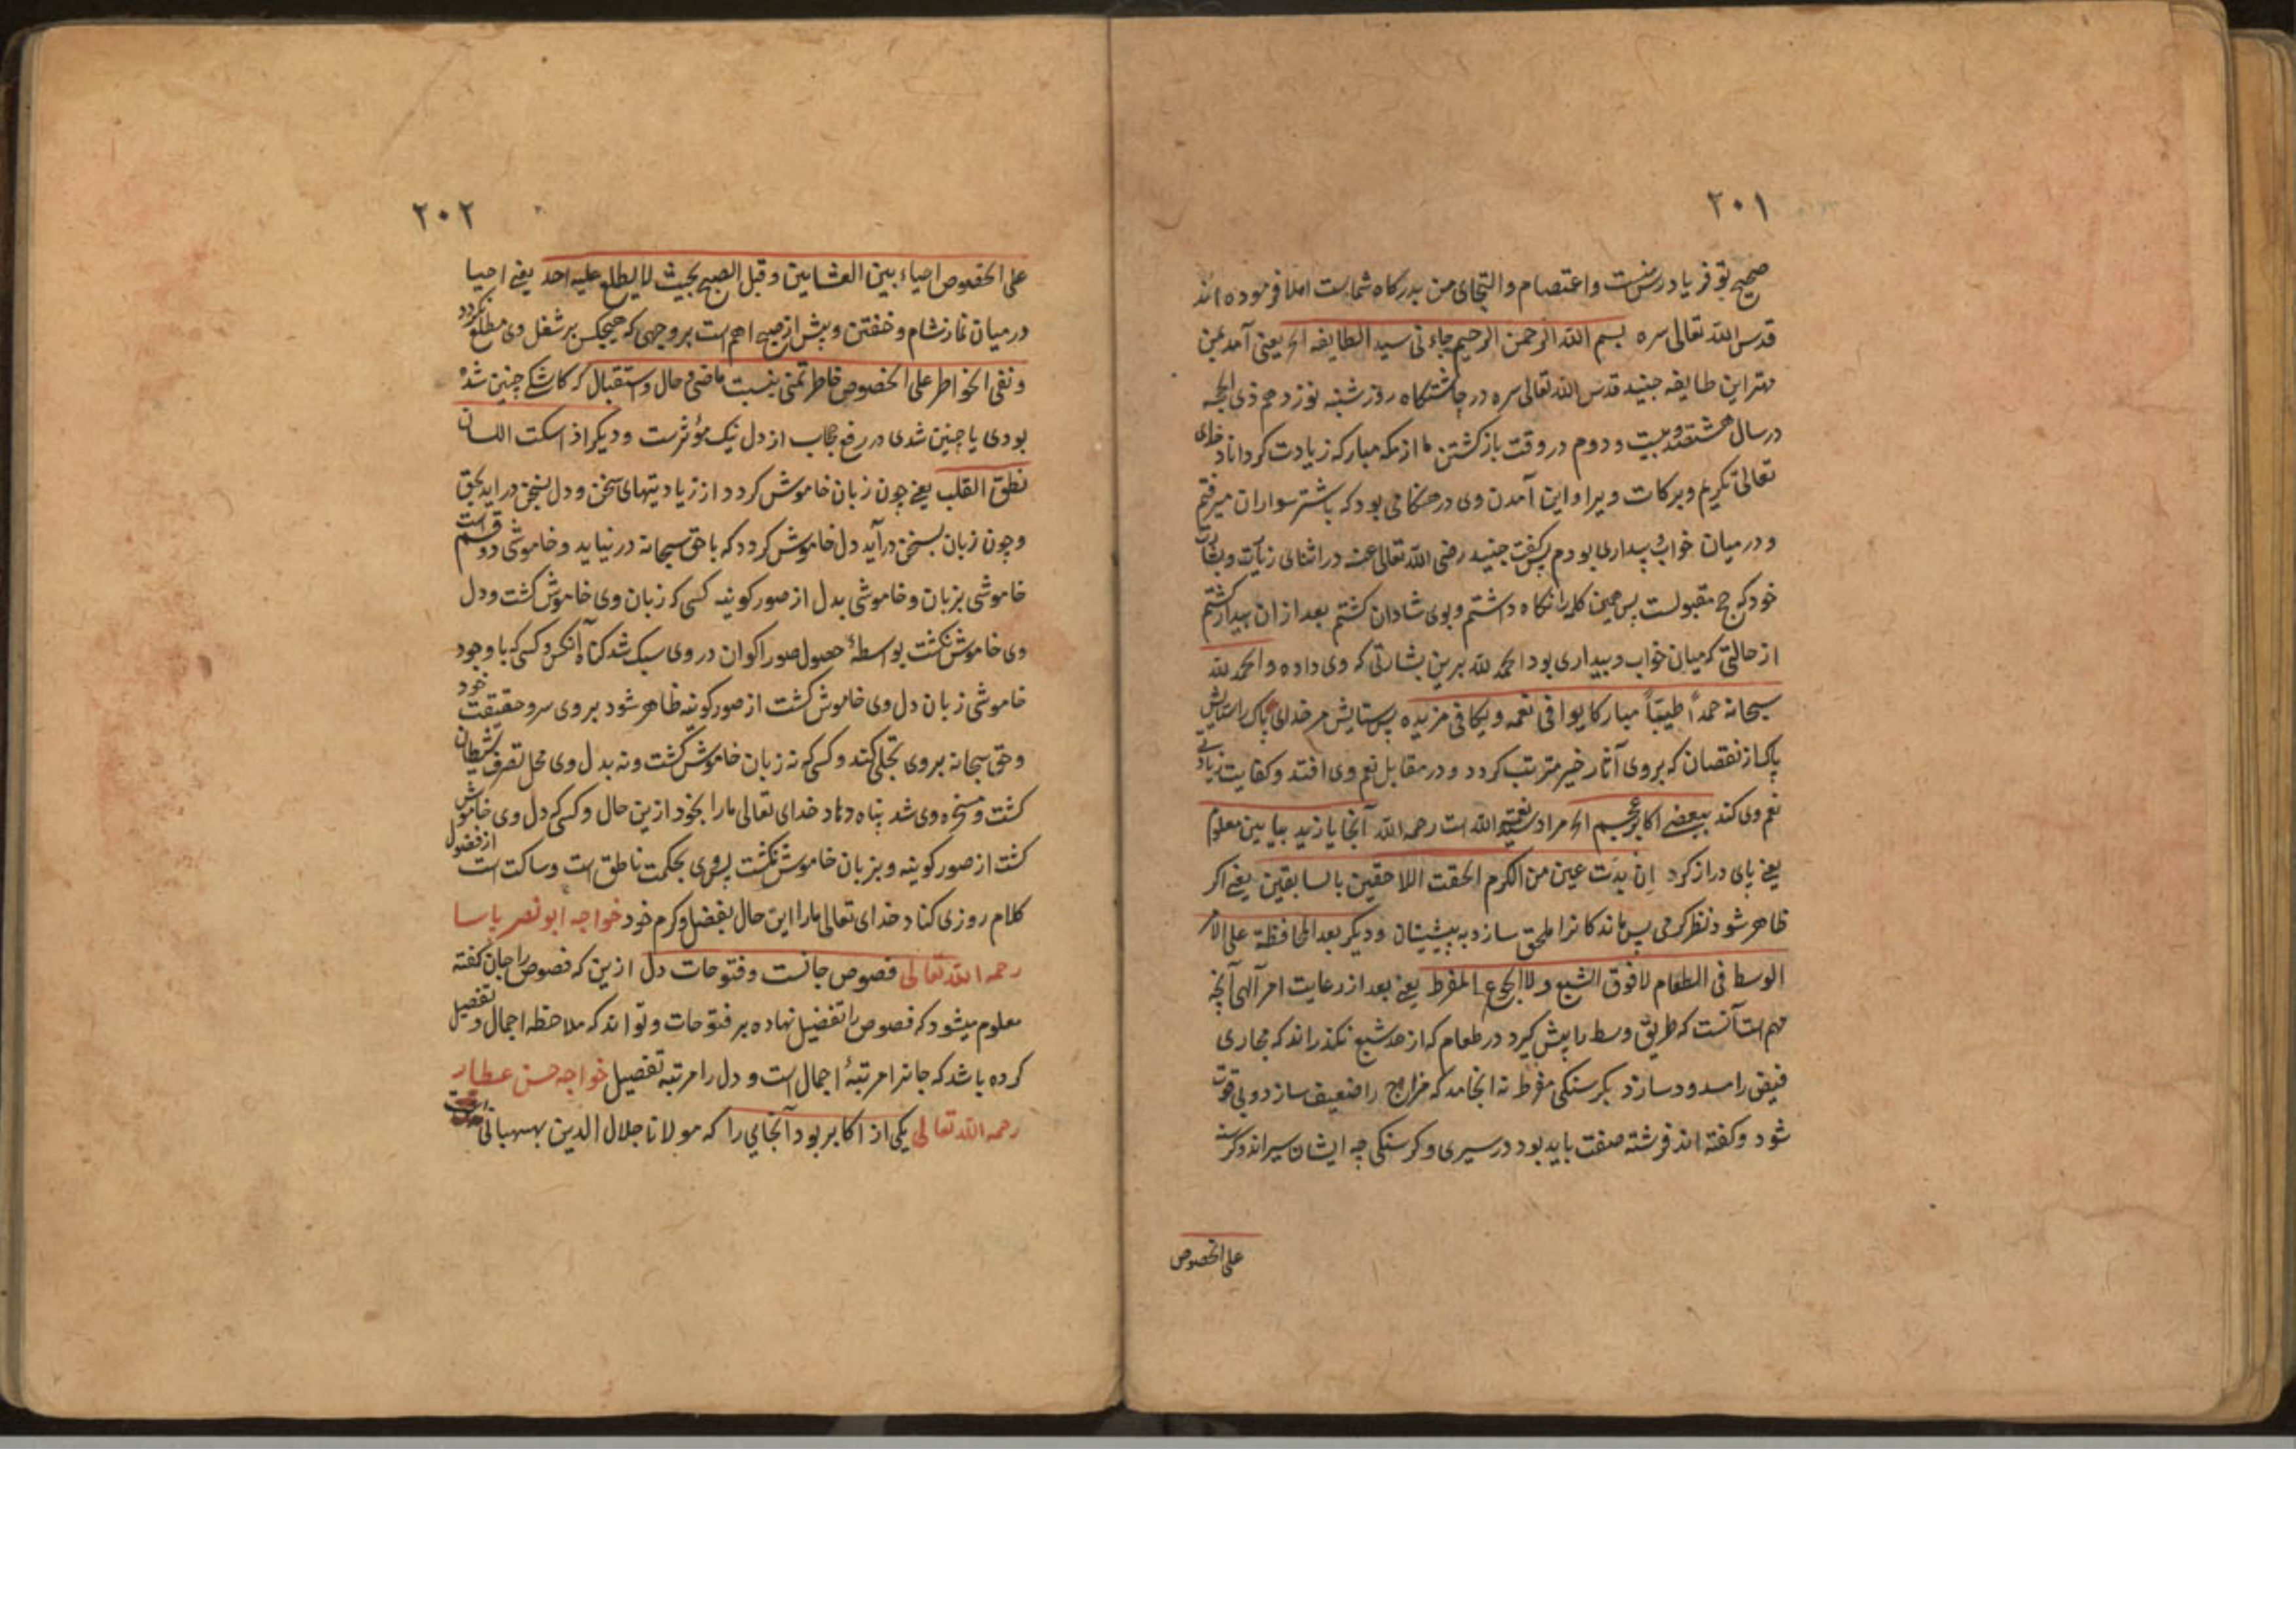 ۲۰۱
صحیح بتو فریادرس منست و اعتصام و التجای من بدرکاه شماست املا فرموده اند
قدس الله تعالی سره بسم الله الرحمن الرحیم جاءنی سید الطایفه الخ یعنی آمد بمن
مهتر این طایفه جنید قدس الله تعالی سره در چاشتکاه روز شنبه نوزدهم ذی الحجه
در سال هشتصد و بیست و دوم در وقت بازکشتن ما از مکه مبارکه زیادت کرداناد خدای
تعالی تکریم و برکات ویرا و این آمدن وی در هنکامی بود که باشتر سواران میرفتم
و در میان خواب و بیداری بودم پس کفت جنید رضی الله تعالی عنه در اثنای زیارت و بشارت
خود که حج مقبولست پس همین کلمه را نکاه داشتم و بوی شادان کشتم بعد از ان بیدار کشتم
از حالتی که میان خواب و بیداری بود الحمد لله برین بشارتی که وی داده و الحمد لله
سبحانه حمداً طیبّاً مبارکا یوافی نعمه و یکافی مزیده پس ستایش مر خدای پاک راستایش
پاک از نقصان که بروی آثار خیر مترتب کردد و در مقابل نعم وی افتد و کفایت زیادتی
نعم وی کند ببعضی اکابر عجم الخ مراد نعمة الله است رحمه الله آنجا یا زید بیا بین معلوم
یعنی پای دراز کرد اِن بدَت عین من الکرم الحقت اللاحقین بالسابقین یعنی اکر
ظاهر شود نظر کرمی پس ماندکانرا ملحق سازد به پیشینان و دیکر بعد المحافظة علی الامر
الوسط فی الطعام لا فوق الشبع و لا الجوع المفرط یعنی بعد از رعایت امر آلهی آنچه
مهم است آنست که طریق وسط را پیش کیرد در طعام که از حد شبع نکذراند که مجاری
فیض را مسدود سازد بکرسنکی مفرط نه انجامد که مزاج را ضعیف سازد و بی قوت
شود و کفته اند فرشته صفت باید بود در سیری و کرسنکی چه ایشان سیراند و کرسنه
علی الخصوص
۲۰۲
علی الخصوص احیاء بین العشایین و قبل الصبح بحیث لا یطلع علیه احد یعنی احیا
در میان نماز شام و خفتن و پیش از صبح اهم است بر وجهی که هیچکس بر شغل وی مطلع نکردد
و نفی الخواطر علی الخصوص خاطر تمنی بنسبت ماضی و حال و استقبال که کاشکی چنین شده
بودی یا چنین شدی در رفع حجاب از دل نیک مؤثرست و دیکر اذا سکت اللسان
نطق القلب یعنی چون زبان خاموش کردد از زیادیتهای سخن و دل بسخن در اید بحق
و چون زبان بسخن درآید دل خاموش کردد که با حق سبحانه در نیاید و خاموشی دو قسم است
خاموشی بزبان و خاموشی بدل از صور کونیه کسی که زبان وی خاموش کشت و دل
وی خاموش نکشت بواسطهٔ حصول صور اکوان در وی سبک شد کناه آنکس و کسی که با وجود
خاموشی زبان دل وی خاموش کشت از صور کونیه ظاهر شود بر وی سر و حقیقت خود
و حق سبحانه بر وی تجلی کند و کسی که نه زبان خاموش کشت و نه بدل وی محل تصرف شیطان
کشت و مسخره وی شد پناه دهاد خدای تعالی ما را بخود ازین حال و کسی که دل وی خاموش
کشت از صور کونیه و بزبان خاموش نکشت پس وی بحکمت ناطق است و ساکت است از فضول
کلام روزی کناد خدای تعالی ما را این حال بفضل و کرم خود خواجه ابو نصر پاسا
رحمه الله تعالی فصوص جانست و فتوحات دل ازین که فصوص را جان کفته
معلوم میشود که فصوص را تفضیل نهاده بر فتوحات و تواند که ملاحظه اجمال و تفصیل
کرده باشد که جانرا مرتبهٔ اجمال است و دل را مرتبه تفصیل خواجه حسن عطار
رحمه الله تعالی یکی از اکابر بود آنجایی را که مولانا جلال الدین